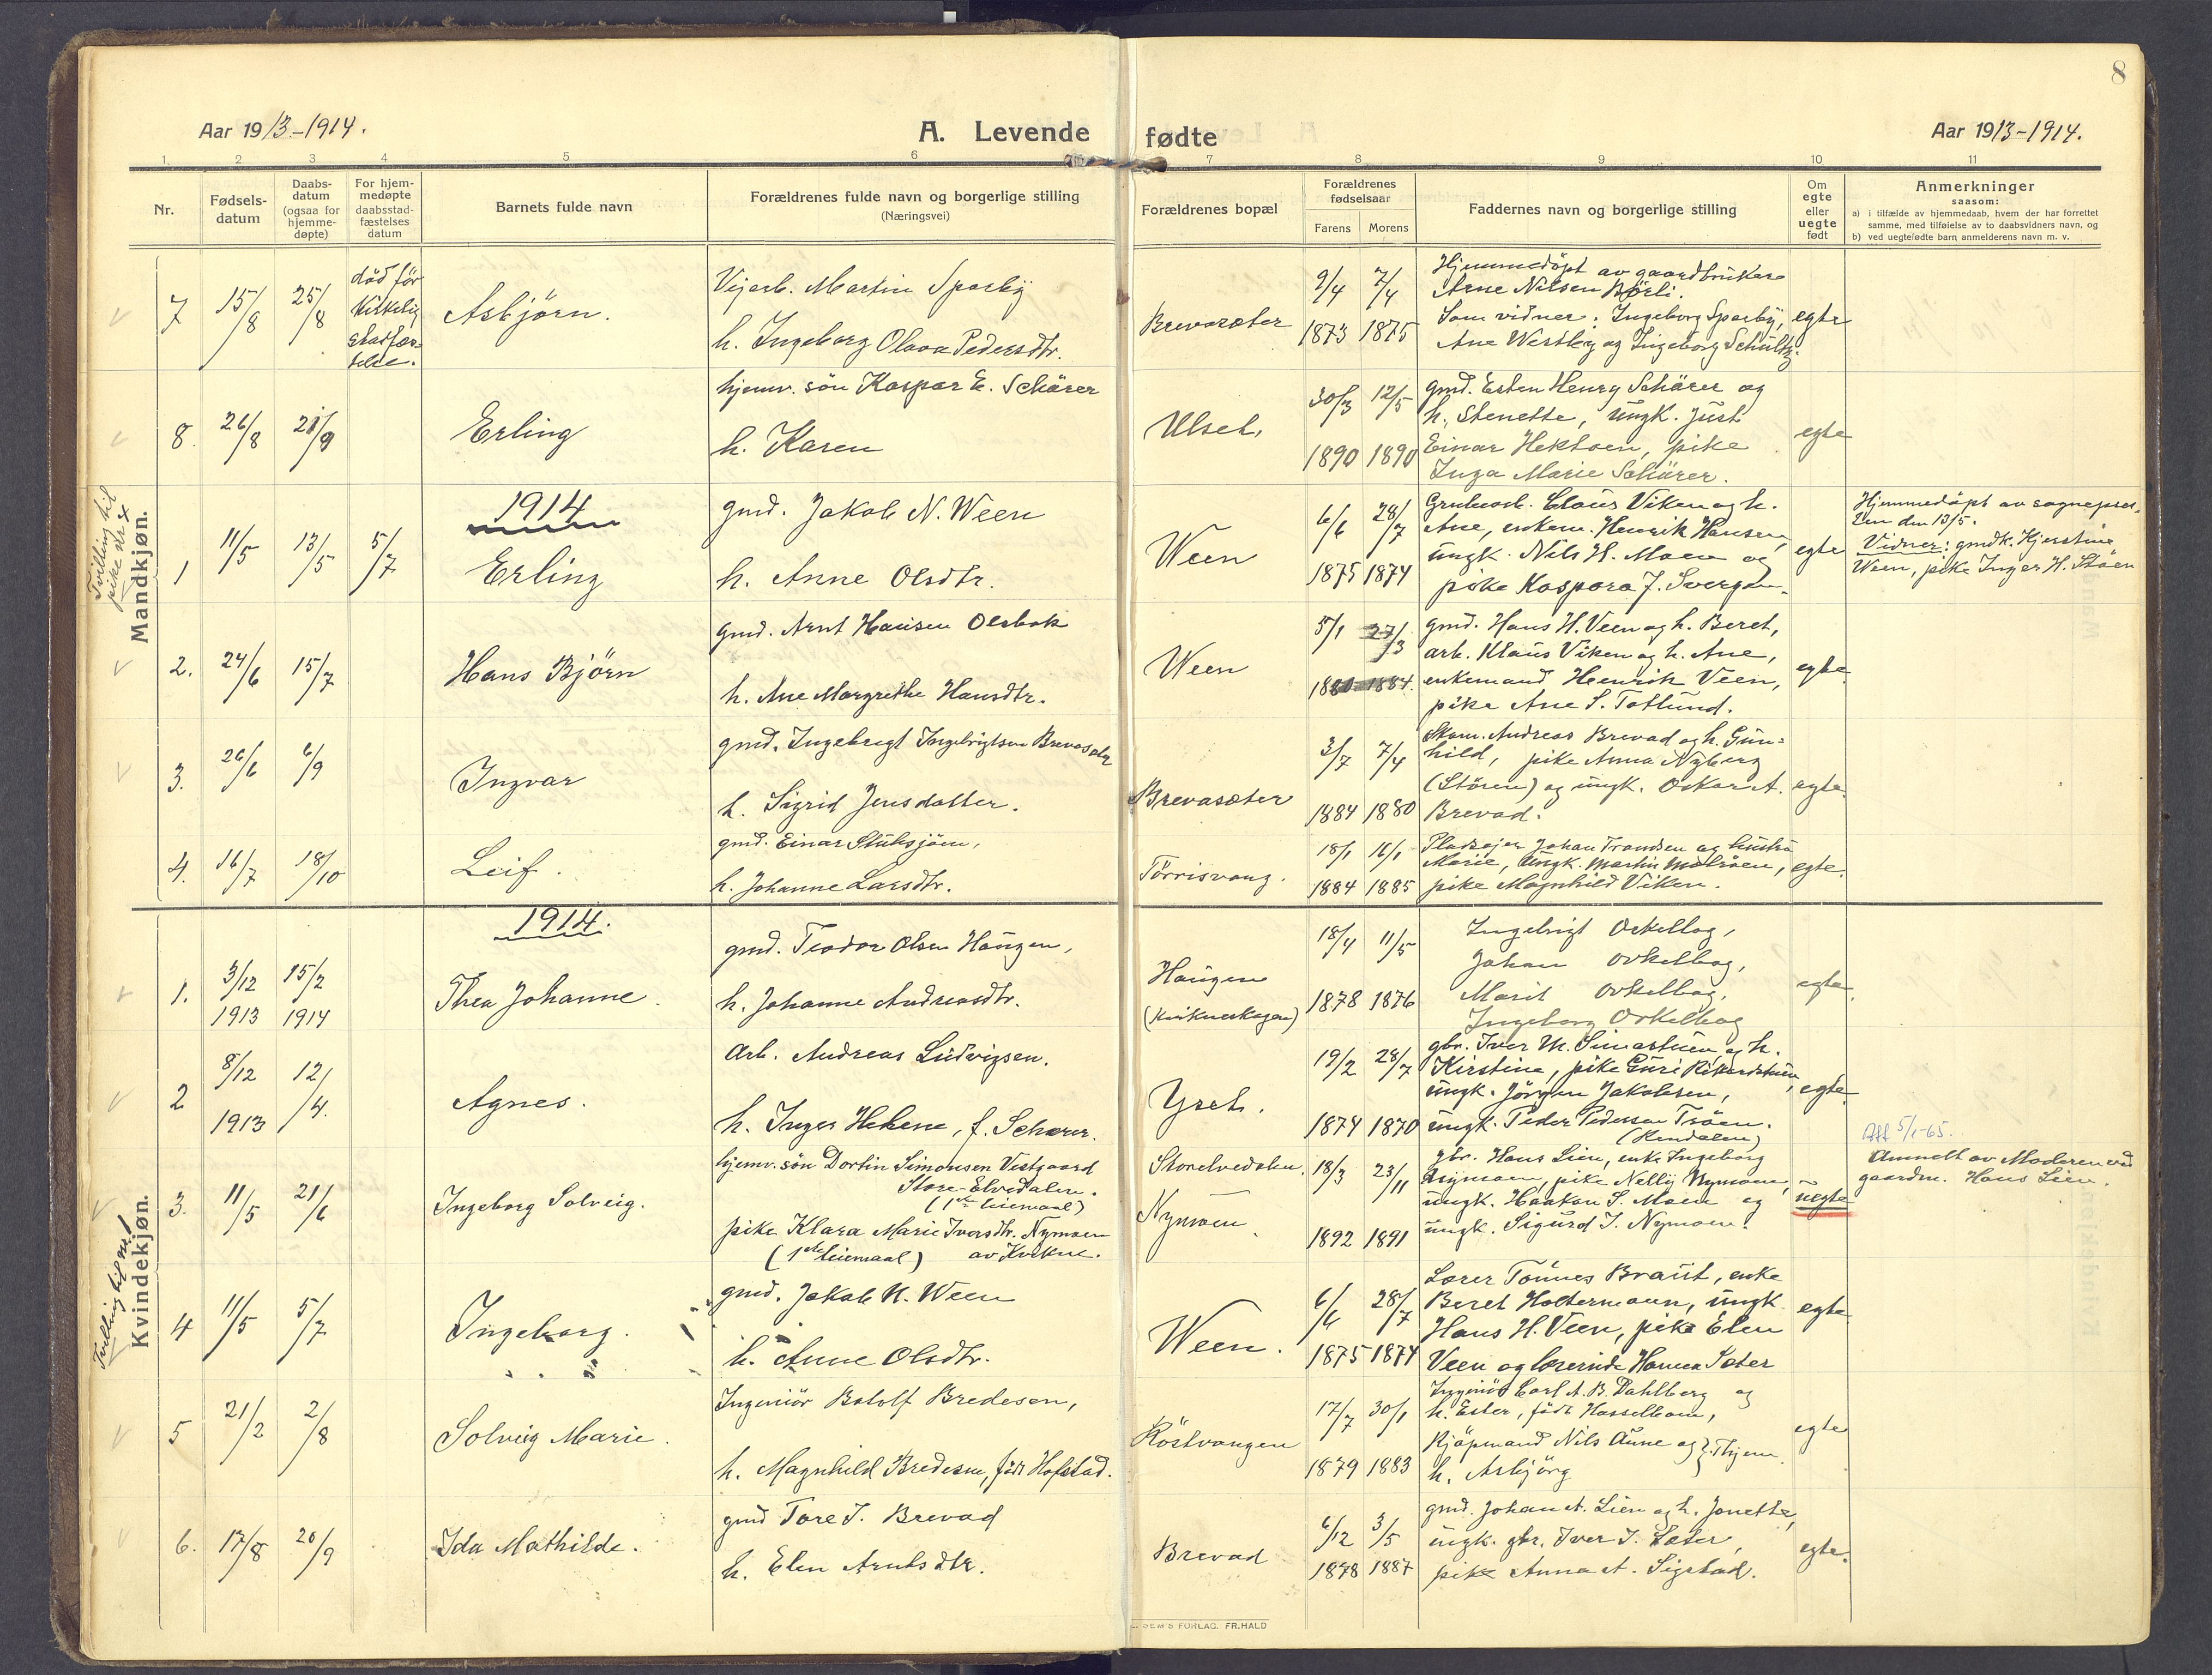 8
Aar 1913-1914.
A. Levende fødte
Aar 1913-1914.
1. 2 3 4 5 6 7 8 9 10 11
Nr.
Fødsels-
datum
Daabs-
datum
(ogsaa for
hjemme-
døpte)
For hjem-
medøpte
daabsstad-
fæstelses
datum
Barnets fulde navn
Forældrenes fulde navn og borgerlige stilling
(Næringsvei)
Forældrenes bopæl
Forældrenes
fødselsaar
Farens Morens
Faddernes navn og borgerlige stilling
Om
egte
eller
uegte
født
Anmerkninger
saasom:
a) i tilfælde av hjemmedaab, hvem der har forrettet
samme, med tilføielse av to daabsvidners navn, og
b) ved uegtefødte barn anmelderens navn m. v.
7 15/8 25/8
død før
Kirkelig
stadfæs-
telse.
Asbjörn.
Vejarb. Martin Sparby
h. Ingeborg Olava Pedersdtr.
Brevasæter
9/4 7/4
1873 1875
Hjemmedöpt av gaardbruker
Arne Nilsen Börli.
Som vidner: Ingeborg Sparby,
Ane Westby og Ingeborg Schultz.
egte
8. 26/8 21/9
Erling
hjemv. sön Kaspar E. Schärer
h. Karen
Ulset,
30/3 12/5
1890 1890
gmd. Esten Henry Schärer og
h. Stenette, ungk. Just
Einar Hektoen, pike
Inga Marie Schärer.
egte
Mandkjøn.
Tvilling til
pike nr 4
1914
1 11/5 13/5 5/7
Erling
gmd. Jakob N. Ween
h. Anne Olsdtr.
Ween
6/6 28/7
1875 1874
Grubearb. Claus Viken og h.
Ane, enkem. Henrik Hansen,
ungk. Nils H. Moen og
pike Kaspara J.
egte
Hjemmedöpt av sognepres-
ten den 13/5.
Vidner: gmdk. Kjerstine
Ween, pike Inger H. Stöen
2. 24/6 15/7
Hans Björn
gmd. Arnt Hansen Olsbak
h. Ane Margrethe Hansdtr.
Ween
5/1 27/3
1884.
gmd. Hans H. Veen og h. Beret,
arb. Klaus Viken og h. Ane,
enkemand Henrik Veen,
pike Ane S. Totlund.
egte
3. 26/6 6/9
Ingvar
gmd. Ingebrigt Ingebrigtsen Brevasæter
h. Sigrid Jensdatter.
Brevasæter
3/7 7/4
1884 1880
Skom. Andreas Brevad og h. Gun=
hild, pike Anna Nyberg
(Stören) og ungk. Oskar A.
Brevad.
egte.
4. 16/7 18/10
Leif.
gmd. Einar Stubsjöen,
h. Johanne Larsdtr.
Törrisvang.
18/1 16/1
1884 1885
Pladsejer Johan Trondsen og hustru
Marie, ungk. Martin Molröen,
pike Magnhild Viken.
egte.
1914.
1. 3/12 15/2
1913 1914
Thea Johanne.
gmd. Teodor Olsen Haugen,
h. Johanne Andreasdtr.
Haugen
(Kvikneskogen)
18/4 11/5
1878 1876
Ingebrigt Orkelbog,
Johan Orkelbog,
Marit Orkelbog,
Ingeborg Orkelbog
egte.
2 8/12 12/4.
1913
Agnes.
Arb. Andreas Ludvigsen.
h. Inger Helene, f. Schärer.
Yset.
19/2 28/7
1874 1870
gbr. Iver M. Simastuen og h.
Kirstine, pike Guri Rikardstuen,
ungk. Jörgen Jakobsen,
ungk. Peder Pedersen Tröen.
egte
Kvindekjøn.
Tvilling til nr. 1
3. 11/5 21/6
Ingeborg Solveig.
hjemv. sön Dortin Simonsen Vestgaard
Store-Elvedalen.
(1ste leiemaal)
pike Klara Marie Iversdtr. Nymoen
(1ste leiemaal) av Kvikne.
Storelvedalen.
Nymoen.
18/3 23/11
1892 1891
(Rendalen)
gbr. Hans Lien, enke Ingeborg
Nymoen, pike Nelly Nymoen,
ungk. Haakon S. Moen og
ungk. Sigurd I. Nymoen.
uegte
Aff 5/1-65.
Anmelt av Moderen ved
gaardm. Hans Lien.
4 11/5 5/7
Ingeborg.
gmd. Jakob N. Ween
h. Anne Olsdtr.
Ween.
6/6 28/7
1875 1874
Lærer Tönnes Braut, enke
Beret Holtermann, ungk.
Hans H. Veen, pike Elen
Veen og lærerinde Hanna Sæter
egte
5 21/2 2/8
Solveig Marie.
Ingeniör Botolf Bredesen,
h. Magnhild Bredesen, född Hofstad.
Röstvangen
17/7 30/1
1879 1883
Ingeniör Carl A. B. Dahlberg og
h. Ester, född Hasselbom,
Kjöpmand Nils Aune og } Thjem
h. Asbjörg
egte
6. 17/8 20/9
Ida Mathilde.
gmd Tore J. Brevad
h. Elen Arntsdtr.
Brevad
6/12 3/5
1878 1887
gmd. Johan A. Lien og h. Jonette,
ungk. gbr. Iver I. Sæter,
pike Anna A. Sigstad.
egte.
FORLAG. FR.HALD